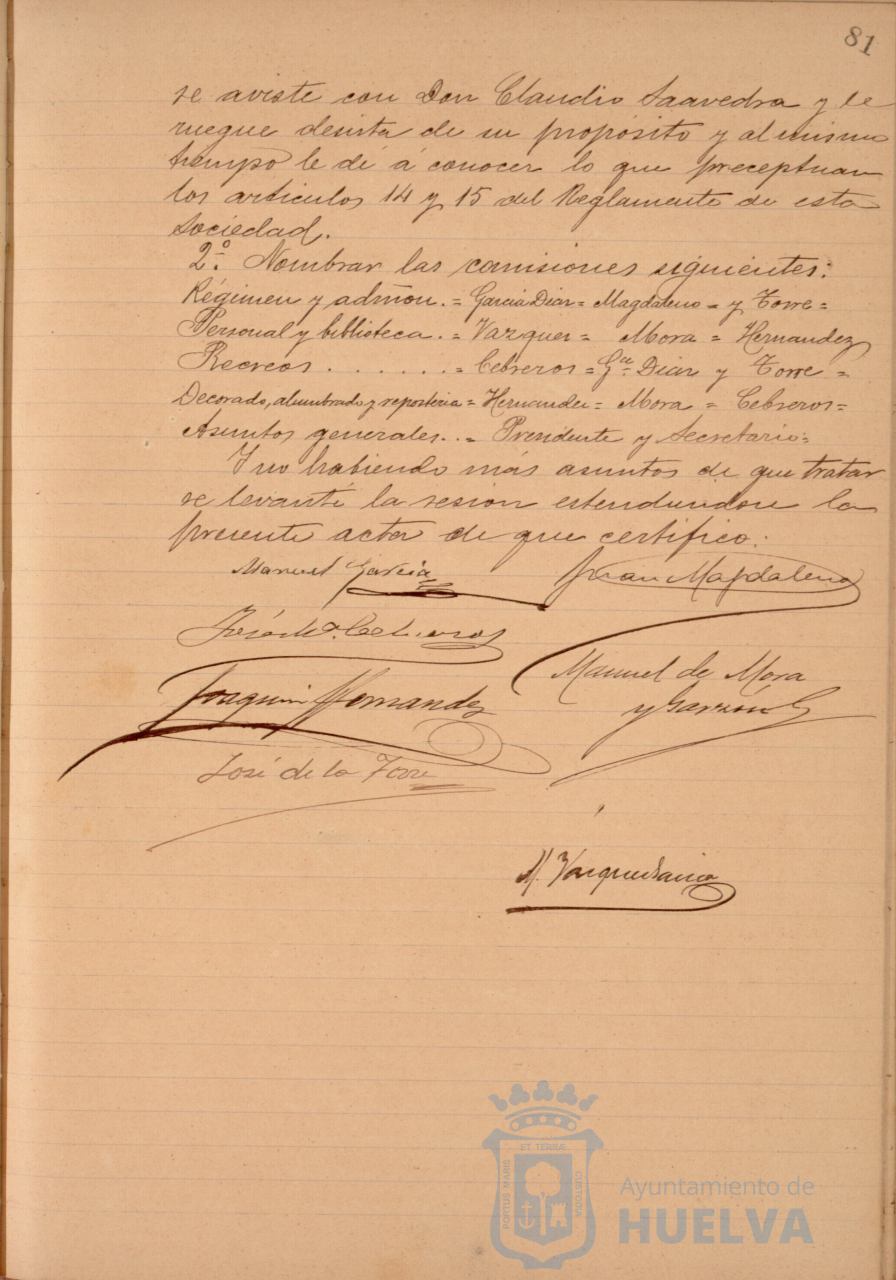 81
se aviste con Don Claudio Saavedra y le
ruegue desista de su propósito y al mismo
tiempo le dé á conocer lo que preceptuan
los articulos 14 y 15 del Reglamento de esta
Sociedad.
2º. Nombrar las comisiones siguientes:
Régimen y admon. = Garcia Diaz = Magdaleno = y Torre =
Personal y biblioteca. = Vazquez = Mora = Hernandez
Recreos . . . . . . . = Cebreros = Gª Diaz y Torre =
Decorado, alumbrado y reposteria = Hernandez = Mora = Cebreros =
Asuntos generales. . = Presidente y Secretario =
Y no habiendo más asuntos de que tratar
se levantó la sesion estendiendose la
presente acta de que certifico.
Manuel Garcia
Juan Magdaleno
José Mª. Cebreros
Manuel de Mora
y Garzón
Joaquin Hernandez
José de la Torre
M. Vazquez
PORTUS MARIS
ET TERRÆ
CUSTODIA
Ayuntamiento de
HUELVA